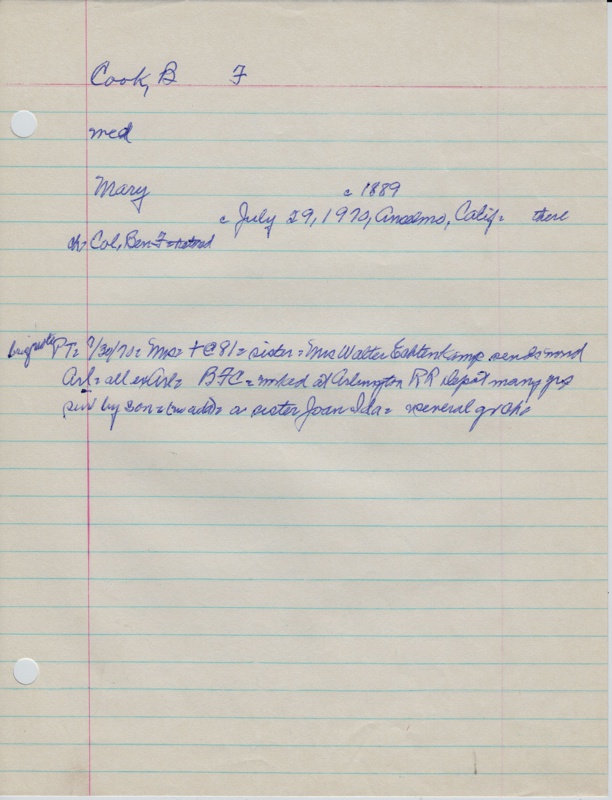 Cook, B F
med
Mary c 1889
c July 29, 1970, Anselmo, Calif= there
ch= Col, Ben F= retired
PT= 7/30/70= Mrs= + @ 81= sister= Mrs Walter Eshtenkamp sends word
Arl= all ex Arl= BFC= worked at Arlington RR Depot many yrs
surv by son= a sister Joan Ida= several gr chn